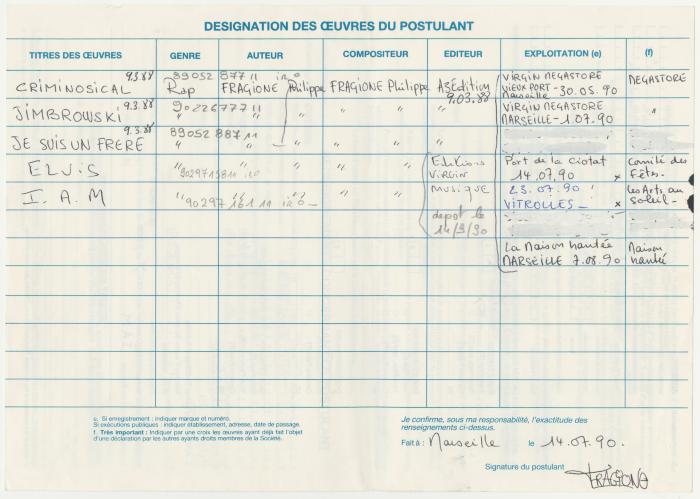 DESIGNATION DES ŒUVRES DU POSTULANT
TITRES DES ŒUVRES GENRE AUTEUR COMPOSITEUR EDITEUR EXPLOITATION (e) (f)
CRIMINOSICAL 9.3.88 89052 877 11 Rap FRAGIONE Philippe FRAGIONE Philippe 9.03.88 VIRGIN MEGASTORE MEGASTORE
VIEUX PORT - 30.05.90
Marseille
JIMBROWSKI 9.3.88 90226777 11 " " " " VIRGIN MEGASTORE "
MARSEILLE - 1.07.90
JE SUIS UN FRERE 9.3.88 89052 887 11 " " " " "
ELVIS " 902971581 11 " " " " Editions Port de la ciotat Comité des
VIRGIN 14.07.90 x Fêtes.
I. A. M " 90297 161 11 " " " " MUSIQUE 23.07.90 " Les Arts au
VITROLLES - x soleil -
depot le
14/3/90
La Maison hantée Maison
MARSEILLE 7.08.90 hantée
e. Si enregistrement : indiquer marque et numéro.
Si exécutions publiques : indiquer établissement, adresse, date de passage.
f. Très important : Indiquer par une croix les œuvres ayant déjà fait l'objet
d'une déclaration par les autres ayants droits membres de la Société.
Je confirme, sous ma responsabilité, l'exactitude des
renseignements ci-dessus.
Fait à : Marseille le 14.07.90.
Signature du postulant
FRAGIONE